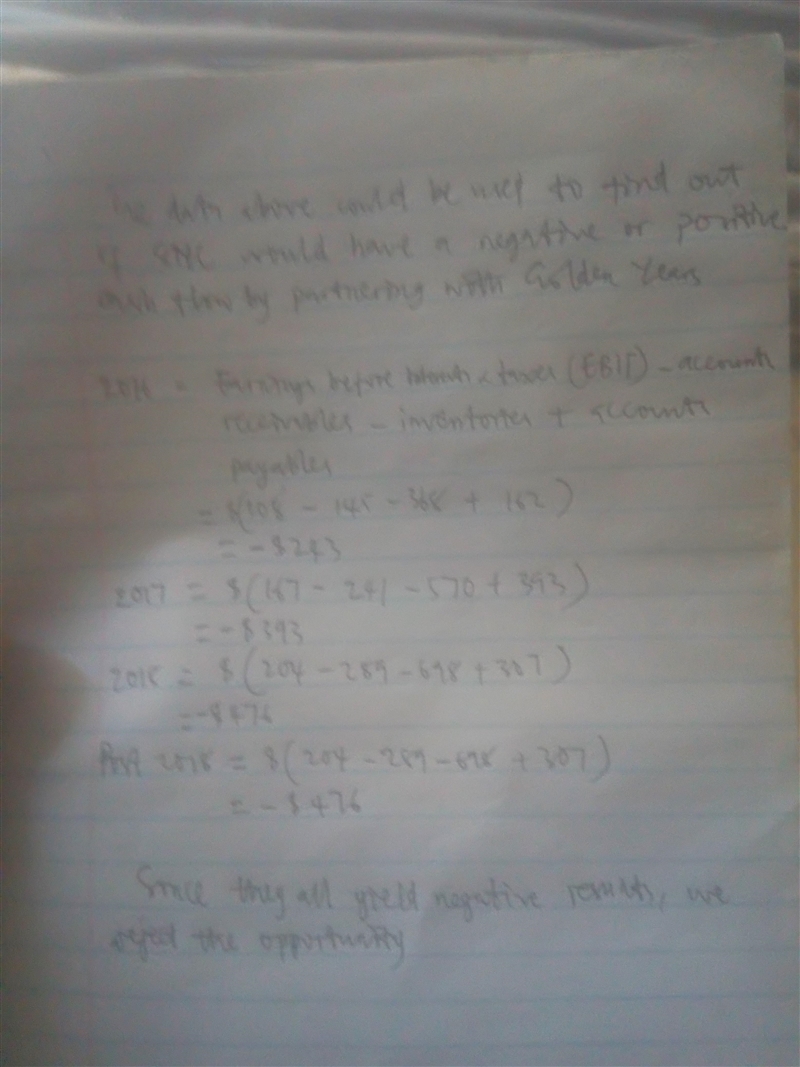 data above could be used to find out
if SNC would have a negative or positive
cash flow by partnering with Golden Years
2016 = Earnings before interests & taxes (EBIT) - accounts
receivables - inventories + accounts
payables
= $(108 - 145 - 368 + 162)
= -$243
2017 = $(167 - 241 - 570 + 393)
= -$393
2018 = $(204 - 289 - 698 + 307)
= -$476
Post 2018 = $(204 - 289 - 698 + 307)
= -$476
Since they all yield negative results, we
reject the opportunity